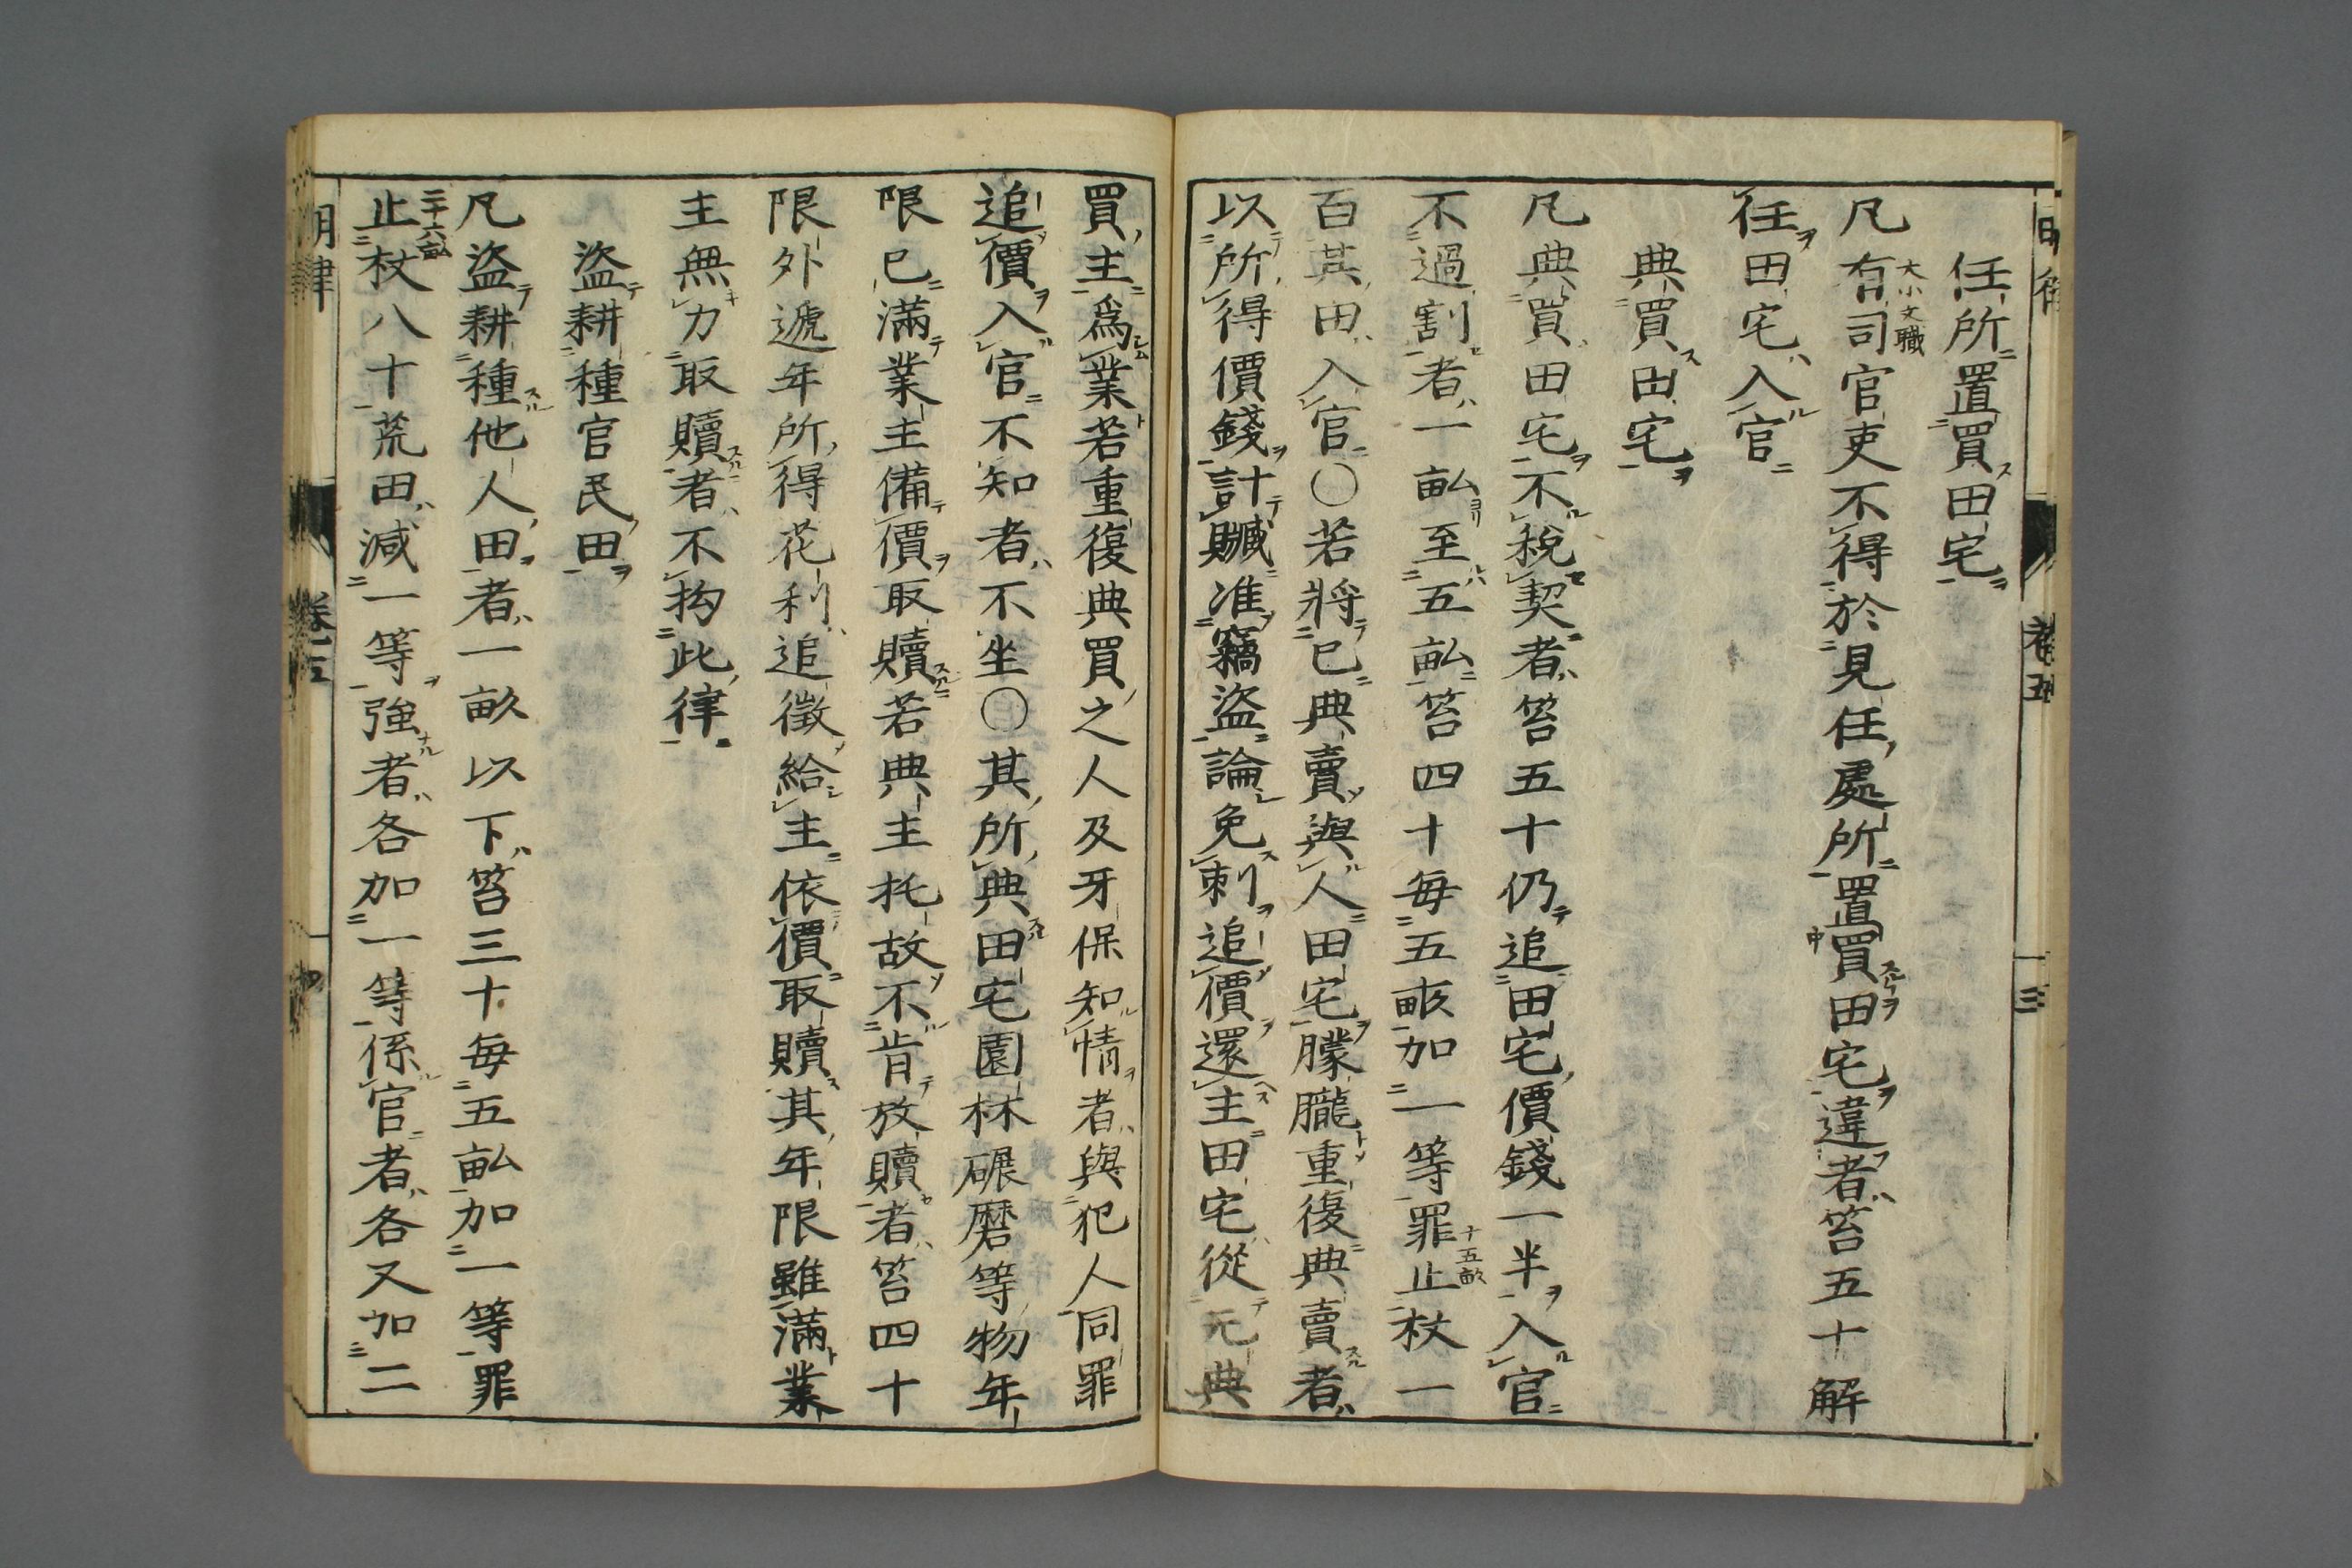 任所置買田宅
凡有司官吏不得於見任處所置買田宅違者笞五十解
大小文職
任田宅入官
典買田宅
凡典買田宅不稅契者笞五十仍追田宅價錢一半入官
不過割者一畝至五畝笞四十每五畝加一等罪止杖一
十五畝
百其田入官○若將已典賣與人田宅朦朧重復典賣者
以所得價錢計贓准竊盜論免刺追價還主田宅從元典
買主爲業若重復典買之人及牙保知情者與犯人同罪
追價入官不知者不坐○其所典田宅園林碾磨等物年
限已滿業主備價取贖若典主托故不肯放贖者笞四十
限外遞年所得花利追徵給主依價取贖其年限雖滿業
主無力取贖者不拘此律
盜耕種官民田
凡盜耕種他人田者一畝以下笞三十每五畝加一等罪
二十六畝
止杖八十荒田減一等強者各加一等係官者各又加二
明律 卷十五 四